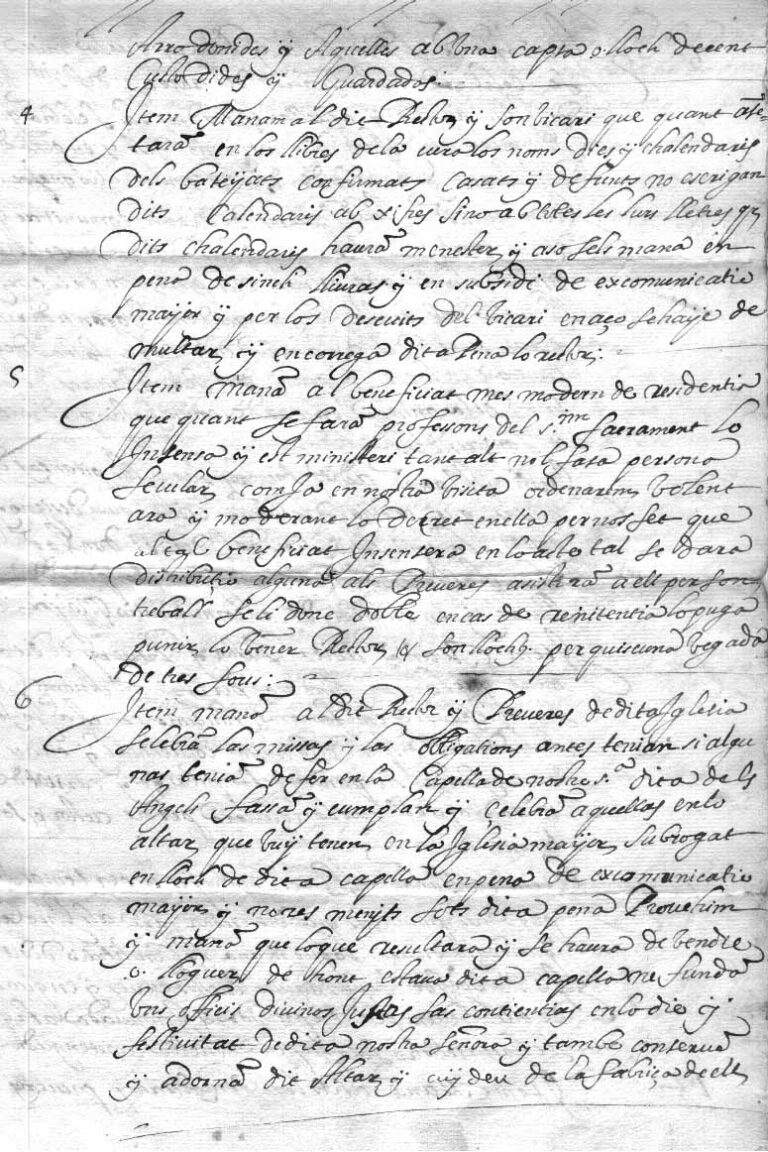 Arrodonides ÿ Aquelles ab una capsa o lloch decent
Cullodides ÿ Guardades:
4 Item Manam al dit Rector ÿ son vicari que quant asse-
tarã en los llibres de la cura los noms dies ÿ chalendaris
dels bateÿats confirmats Casats ÿ defunts no escrigan
dits Calendaris ab xifres sino ab totes les lurs lletres q
dits chalendaris haurã menester ÿ aso sels mana en
pena de sinch lliuras ÿ en subsidi de excomunicatio
maÿor ÿ per los descuits del vicari en aço se haÿe de
multar ÿ encorrega dita Pena lo rector:
5 Item manã al beneficiat mes modern de residentia
que quant se farã professons del s.im Sacrament lo
Insensa ÿ est ministeri tant alt nol fassa persona
secular com Ja en nostra visita ordenarem volent
ara ÿ moderant lo decret en ella per nos fet que
al tal beneficiat Insensera en lo acte tal se dara
distributio alguna als Preveres asistirã a ell per son
treball seli done doble en cas de renitentia lo puga
punir lo vener Rector son lloch. per quiscuna vegada
de tres sous:
6 Item manã al dit Rector ÿ Preveres de dita Iglesia
selebrã las missas ÿ las obligations antes tenian si algu
nas teniã de fer en la Capella de nostre s.a dita dels
Angels fassã ÿ cumplan ÿ celebrã aquellas en lo
altar que vuÿ tenen en la Iglesia maÿor subrogat
en lloch de dita capella en pena de excomunicatio
maÿor ÿ no res menÿs sots dita pena Provehim
ÿ manã que lo que resultara ÿ se haura de vendre
o lloguer de hont estava dita capella ne fundã
uns officis divinos Justas sas contientias en lo die ÿ
festivitat de dita nostra señora ÿ tambe conservã
ÿ adornã dit Altar ÿ cuÿden de la fabrica de ell